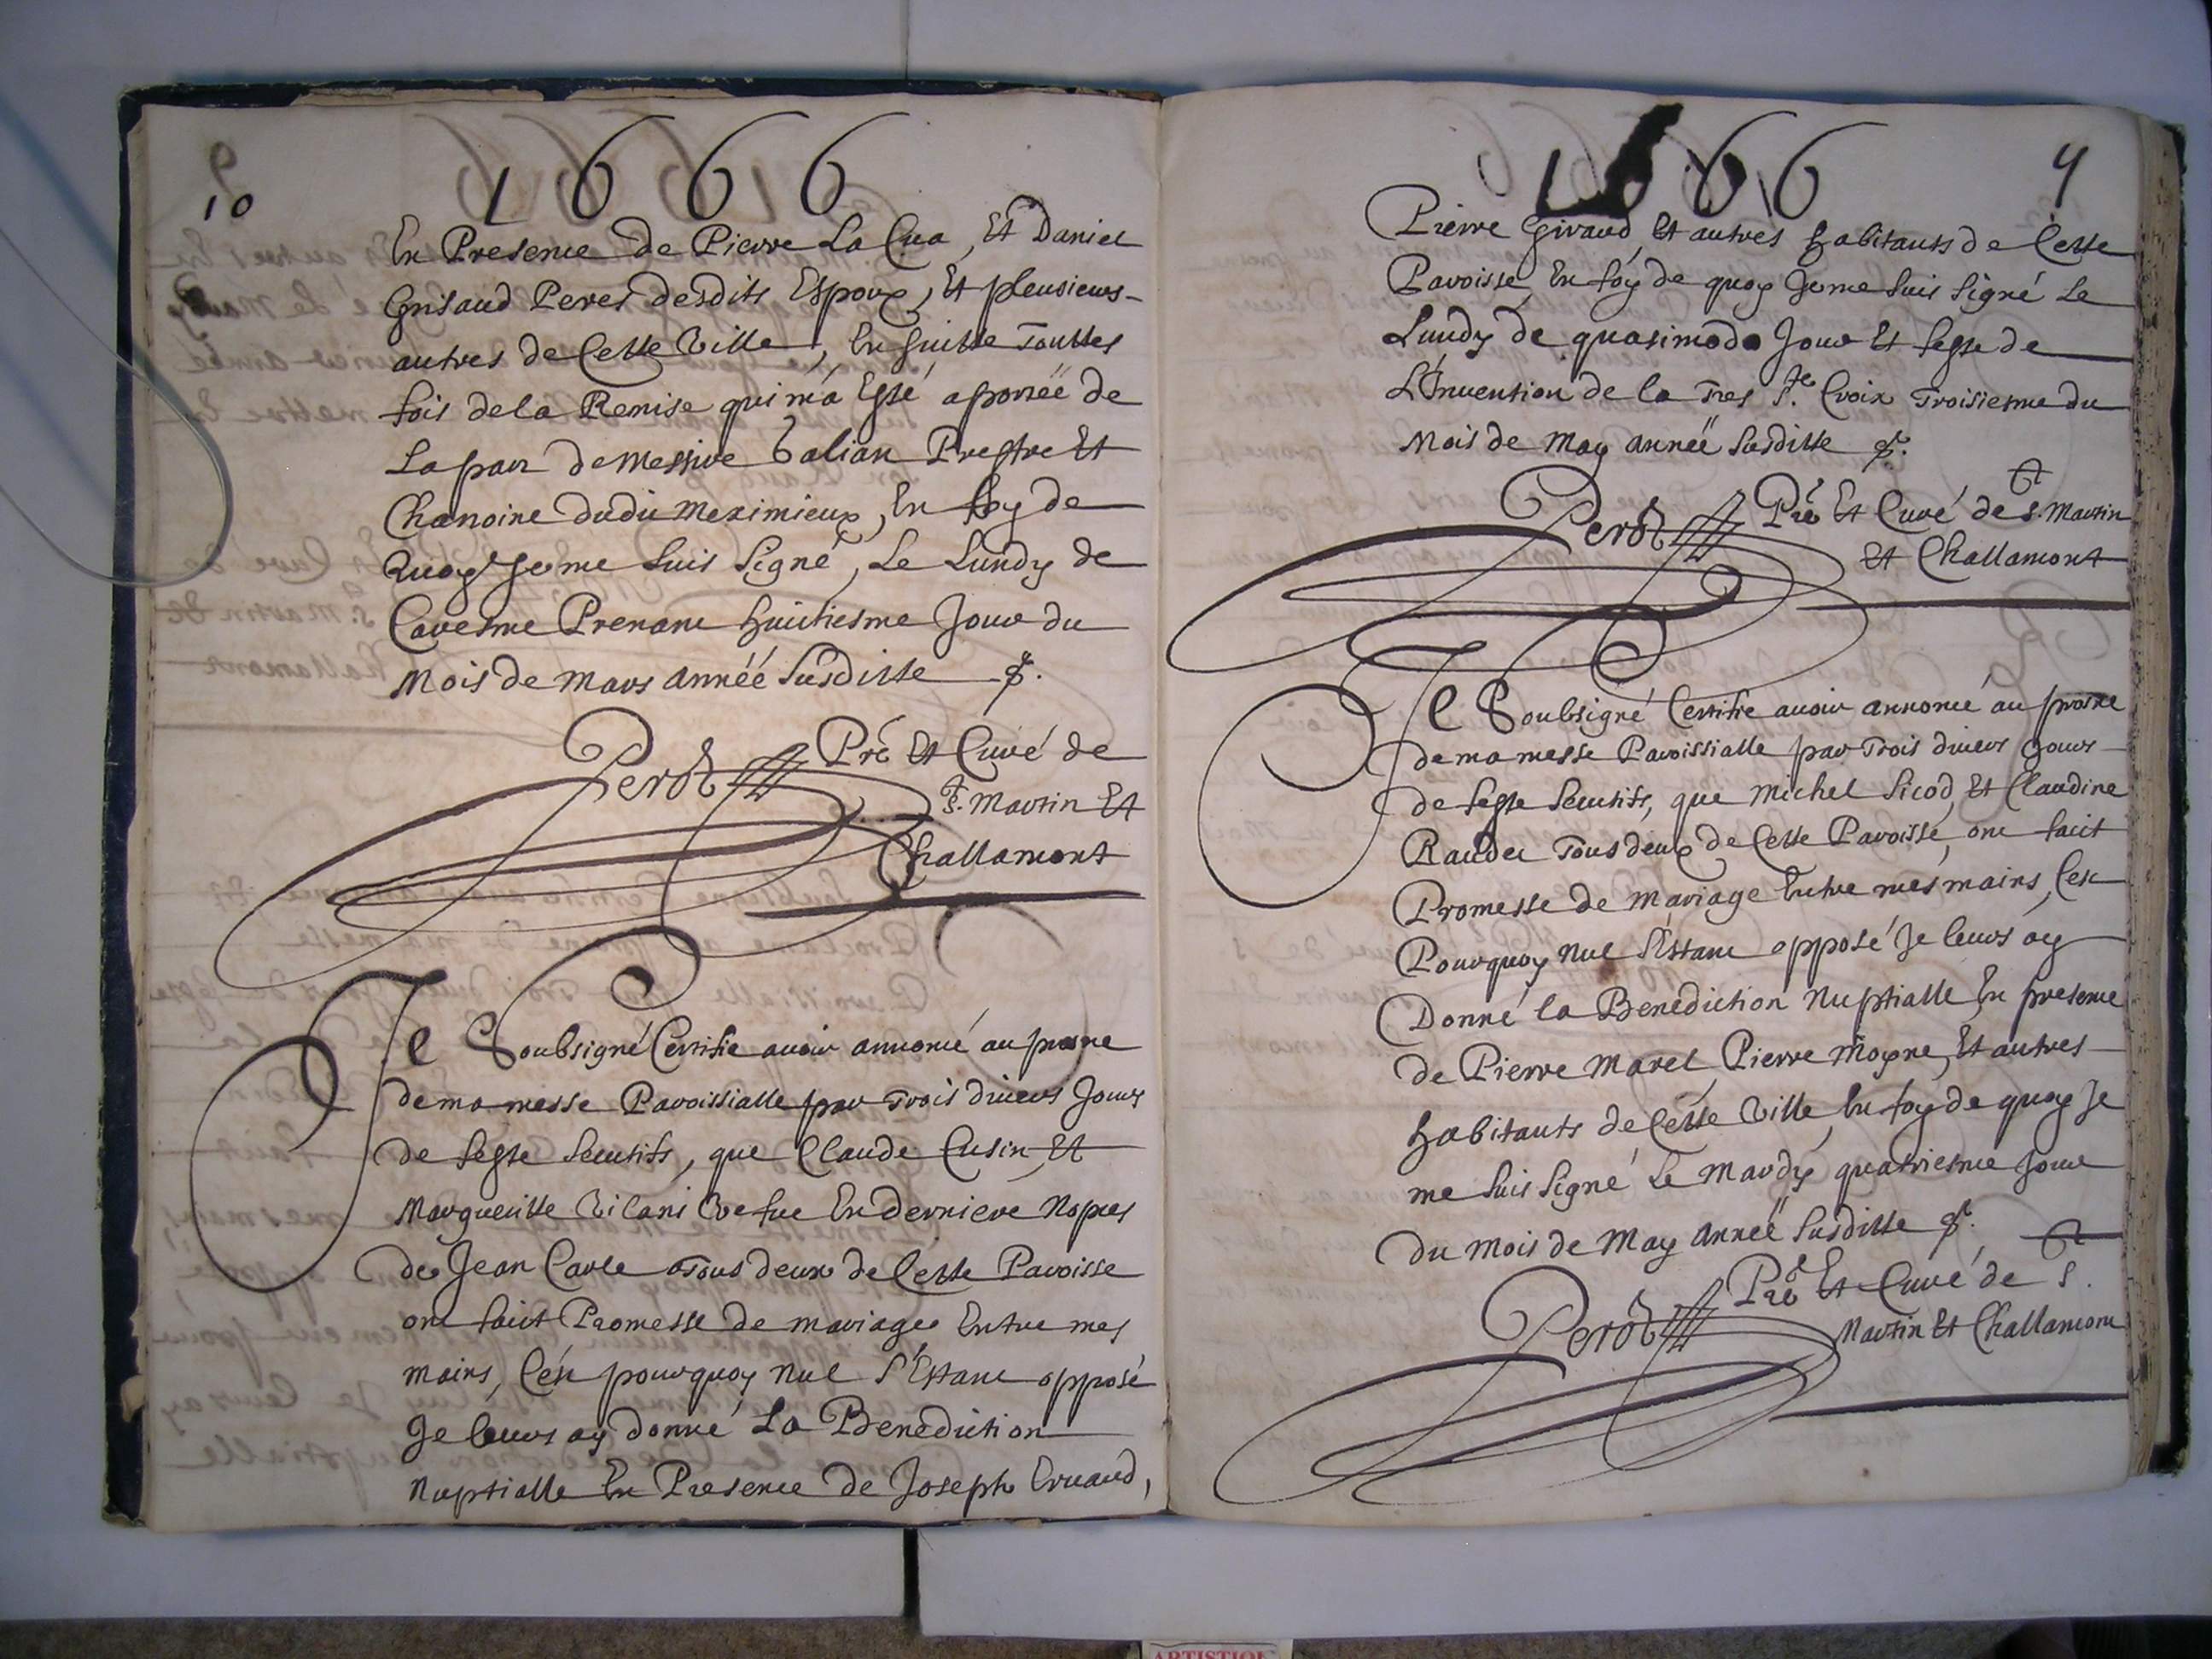 9
10
1666
En Presence de Pierre La Cua, Et Daniel
Grisaud Peres desdits Espoux, Et pleusieurs
autres de Cette Ville, En suitte Touttes
fois de la Remise qui m'a Esté aportéë de
La part de messire Valian Prestre Et
Chanoine dudit meximieux, En foy de
Quoy Je me suis signé, Le Lundy de
Caresme Prenant huictiesme Jour du
Mois de mars annéé susditte &.
Perod Pre Et Curé de
St. Martin Et
Challamont
Je Soubsigné Certifie avoir annoncé au prosne
de ma messe Paroissialle par Trois divers Jours
de feste secutifs, que Claude Cusin, Et
Margueritte Vilani Vefue En derniere Nopces
de Jean Carle Tous deux de Cette Paroisse
ont faict Promesse de mariage Entre mes
mains, C'est pourquoy Nul s'Estant opposé
Je leurs ay donné La Benediction
Nuptialle En Presence de Joseph Eruaud,
1666
4
Pierre Giraud, Et autres habitants de Cette
Paroisse, En foy de quoy Je me suis signé Le
Lundy de quasimodo Jour Et feste de
L'Invention de la Tres Ste. Croix Troisiesme du
Mois de May annéë susditte &.
Perod Pre Et Curé de St. Martin
Et Challamont
Je Soubsigné Certifie avoir annoncé au prosne
de ma messe Paroissialle par Trois divers Jours
de feste secutifs, que Michel Sicod, Et Claudine
Raudet Tous deux de Cette Paroisse, ont faict
Promesse de Mariage Entre mes mains, C'est
Pourquoy Nul s'Estant opposé Je leurs ay
Donné la Benediction Nuptialle En presence
de Pierre Marel, Pierre Moyne, Et autres
habitants de Cette Ville, En foy de quoy Je
me suis signé Le Mardy quatriesme Jour
du Mois de May annéë susditte &.
Perod Pre Et Curé de St.
Martin Et Challamont